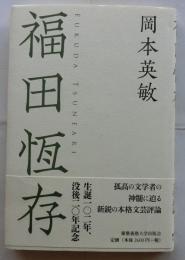 岡本英敏
福田恆存
FUKUDA TSUNEARI
孤高の文学者の
神髄に迫る
新鋭の本格文芸評論
生誕一〇二年、
没後二〇年記念
慶應義塾大学出版会
定価(本体2600円+税)